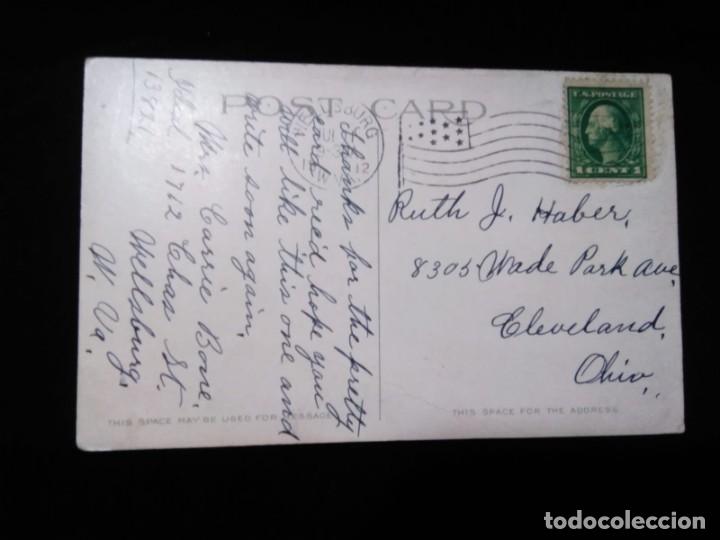 POST CARD
U.S. POSTAGE
1 CENT 1
BURG
Thanks for the pretty
card rec'd hope you
will like this one and
write soon again.
Mrs. Carrie Bone.
1712 Chas St.
Wellsburg,
W. Va.
Ruth J. Haber,
8305 Wade Park Ave,
Cleveland,
Ohio.
THIS SPACE MAY BE USED FOR MESSAGE
THIS SPACE FOR THE ADDRESS
todocoleccion
todocoleccion.net